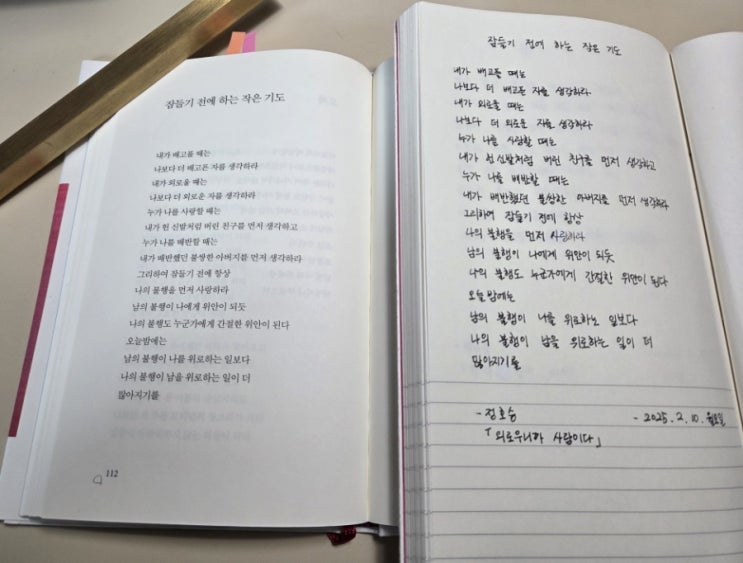 잠들기 전에 하는 작은 기도
내가 배고플 때는
나보다 더 배고픈 자를 생각하라
내가 외로울 때는
나보다 더 외로운 자를 생각하라
누가 나를 사랑할 때는
내가 헌 신발처럼 버린 친구를 먼저 생각하고
누가 나를 배반할 때는
내가 배반했던 불쌍한 아버지를 먼저 생각하라
그리하여 잠들기 전에 항상
나의 불행을 먼저 사랑하라
남의 불행이 나에게 위안이 되듯
나의 불행도 누군가에게 간절한 위안이 된다
오늘밤에는
남의 불행이 나를 위로하는 일보다
나의 불행이 남을 위로하는 일이 더
많아지기를
112
잠들기 전에 하는 작은 기도
내가 배고플 때는
나보다 더 배고픈 자를 생각하라
내가 외로울 때는
나보다 더 외로운 자를 생각하라
누가 나를 사랑할 때는
내가 헌 신발처럼 버린 친구를 먼저 생각하고
누가 나를 배반할 때는
내가 배반했던 불쌍한 아버지를 먼저 생각하라
그리하여 잠들기 전에 항상
나의 불행을 먼저 사랑하라
남의 불행이 나에게 위안이 되듯
나의 불행도 누군가에게 간절한 위안이 된다
오늘밤에는
남의 불행이 나를 위로하는 일보다
나의 불행이 남을 위로하는 일이 더
많아지기를
- 정호승 - 2025. 2. 10. 월요일
「외로우니까 사람이다」